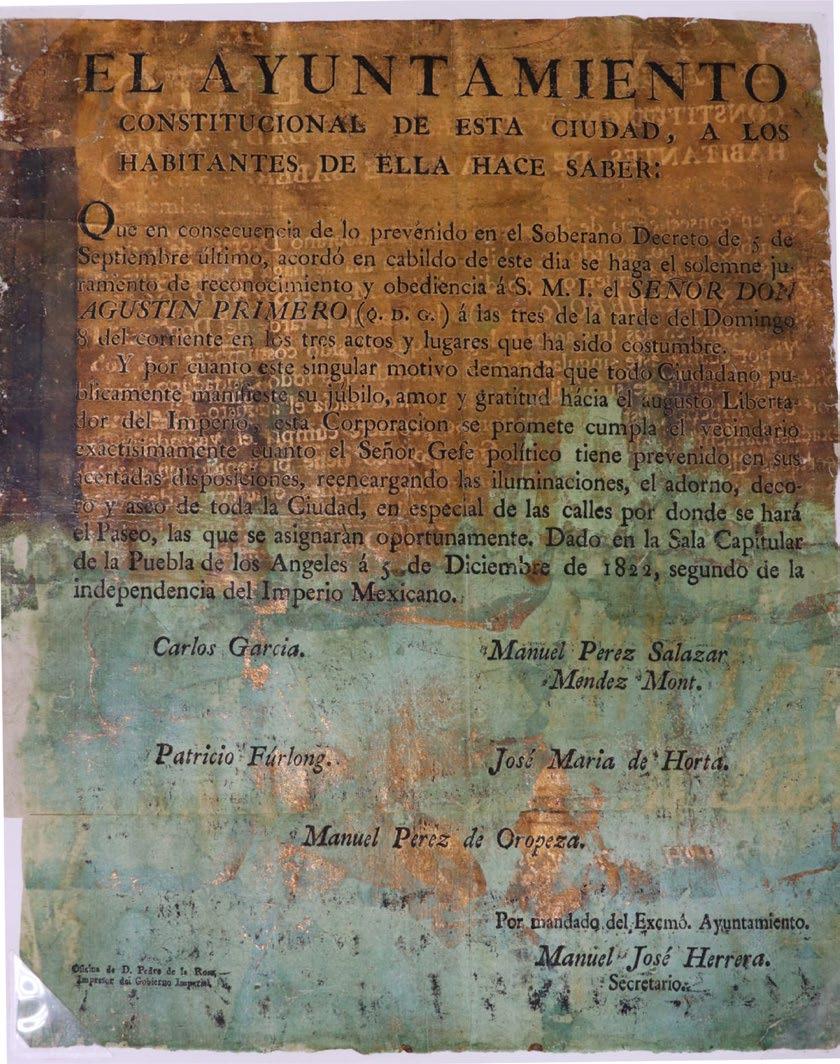 EL AYUNTAMIENTO
CONSTITUCIONAL DE ESTA CIUDAD, A LOS
HABITANTES DE ELLA HACE SABER:
Que en consecuencia de lo prevenido en el Soberano Decreto de 5 de
Septiembre último, acordó en cabildo de este dia se haga el solemne ju-
ramento de reconocimiento y obediencia á S. M. I. el SEÑOR DON
AGUSTIN PRIMERO (Q. D. G.) á las tres de la tarde del Domingo
8 del corriente en los tres actos y lugares que ha sido costumbre.
Y por cuanto este singular motivo demanda que todo Ciudadano pu-
blicamente manifieste su júbilo, amor y gratitud hácia el augusto Liberta-
dor del Imperio, esta Corporacion se promete cumpla el vecindario
exactísimamente cuanto el Señor Gefe político tiene prevenido en sus
acertadas disposiciones, reencargando las iluminaciones, el adorno, deco-
ro y aseo de toda la Ciudad, en especial de las calles por donde se hará
el Paseo, las que se asignaràn oportunamente. Dado en la Sala Capitular
de la Puebla de los Angeles á 5 de Diciembre de 1822, segundo de la
independencia del Imperio Mexicano.
Carlos Garcia. Manuel Perez Salazar
Mendez Mont.
Patricio Fúrlong. José Maria de Horta.
Manuel Perez de Oropeza.
Por mandado del Excmô. Ayuntamiento.
Manuel José Herrera.
Secretario.
Oficina de D. Pedro de la Rosa,
Impresor del Gobierno Imperial.